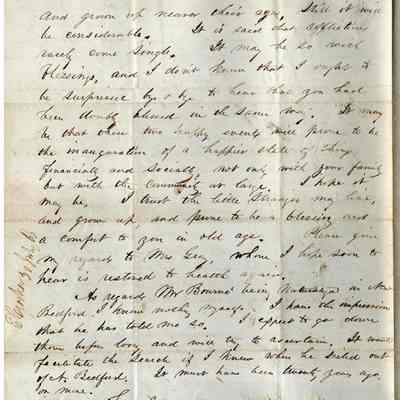 and grown up nearer their age, still it will
be considerable. It is said that afflictions
rarely come single. It may be so with
blessings, and I don't know that I ought to
be surprised by & by to hear that you had
been doubly blessed in the same way. It may
be that these two happy events will prove to be
the inauguration of a happier state of things
financially and socially, not only with your family
but with the community at large. I hope it
may be. I trust the little stranger may live,
and grow up and prove to be a blessing and
a comfort to you in old age. Please give
my regards to Mrs Gray, whom I hope soon to
hear is restored to health again.
As regards Mr Bourne being Naturalized in New
Bedford I know nothing myself, I have the impression
that he has told me so. I expect to go down
there before long and will try to ascertain. It would
facilitate the search if I knew when he sailed out
of N. Bedford. It must have been twenty years ago,
or more.